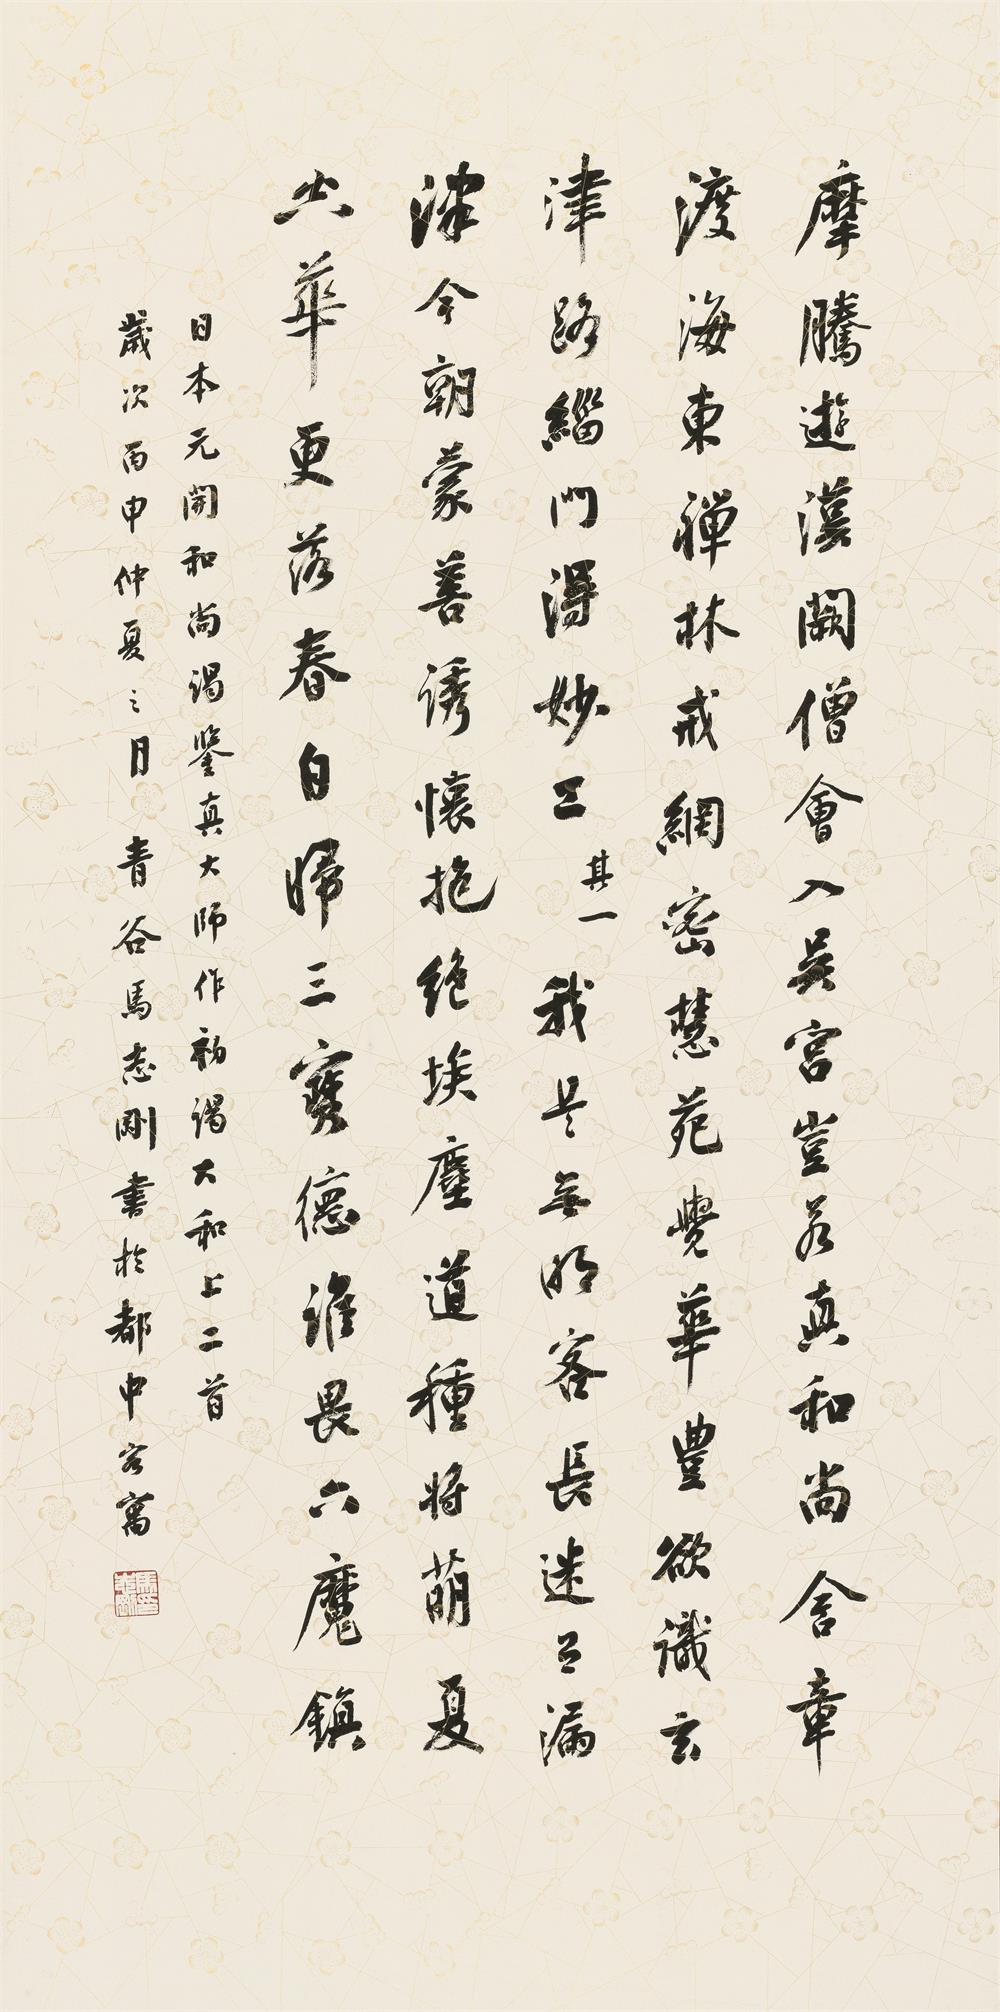 摩騰遊漢闕僧會入吳宮豈若真和尚含章
渡海東禪林戒網密慧苑覺華豐欲識玄
津路緇門得妙工其一我是無明客長迷有漏
津今朝蒙善誘懷抱絕埃塵道種將萌夏
空華更落春自歸三寶德誰畏六魔鎮
日本元開和尚謁鑒真大師作初謁大和上二首
歲次丙申仲夏之月青谷馬志剛書於都中客寓